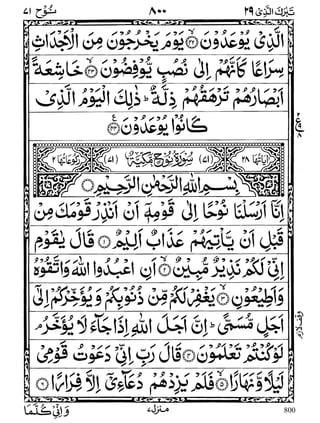 تبٰرك الذی ٢٩ ٨٠٠ نوح ٧١
الَّذِیْ یُوْعَدُوْنَ ﴿٤٢﴾ یَوْمَ یَخْرُجُوْنَ مِنَ الْاَجْدَاثِ
سِرَاعًا كَاَنَّهُمْ اِلٰی نُصُبٍ یُّوْفِضُوْنَ ﴿٤٣﴾ خَاشِعَةً
اَبْصَارُهُمْ تَرْهَقُهُمْ ذِلَّةٌ ؕ ذٰلِكَ الْیَوْمُ الَّذِیْ
كَانُوْا یُوْعَدُوْنَ ﴿٤٤﴾
اٰیاتها ٢٨ (٧١) سُوْرَةُ نُوْحٍ مَّكِّیَّةٌ (٧١) ركوعاتها ٢
بِسْمِ اللّٰهِ الرَّحْمٰنِ الرَّحِیْمِ
اِنَّاۤ اَرْسَلْنَا نُوْحًا اِلٰی قَوْمِهٖۤ اَنْ اَنْذِرْ قَوْمَكَ مِنْ
قَبْلِ اَنْ یَّاْتِیَهُمْ عَذَابٌ اَلِیْمٌ ﴿١﴾ قَالَ یٰقَوْمِ
اِنِّیْ لَكُمْ نَذِیْرٌ مُّبِیْنٌ ﴿٢﴾ اَنِ اعْبُدُوا اللّٰهَ وَاتَّقُوْهُ
وَاَطِیْعُوْنِ ﴿٣﴾ یَغْفِرْ لَكُمْ مِّنْ ذُنُوْبِكُمْ وَیُؤَخِّرْكُمْ اِلٰۤی
اَجَلٍ مُّسَمًّی ؕ اِنَّ اَجَلَ اللّٰهِ اِذَا جَآءَ لَا یُؤَخَّرُ
لَوْ كُنْتُمْ تَعْلَمُوْنَ ﴿٤﴾ قَالَ رَبِّ اِنِّیْ دَعَوْتُ قَوْمِیْ
لَیْلًا وَّنَهَارًا ﴿٥﴾ فَلَمْ یَزِدْهُمْ دُعَآءِیْۤ اِلَّا فِرَارًا ﴿٦﴾
وقف لازم
وَاِنِّیْ كُلَّمَا منزل ٧ 800